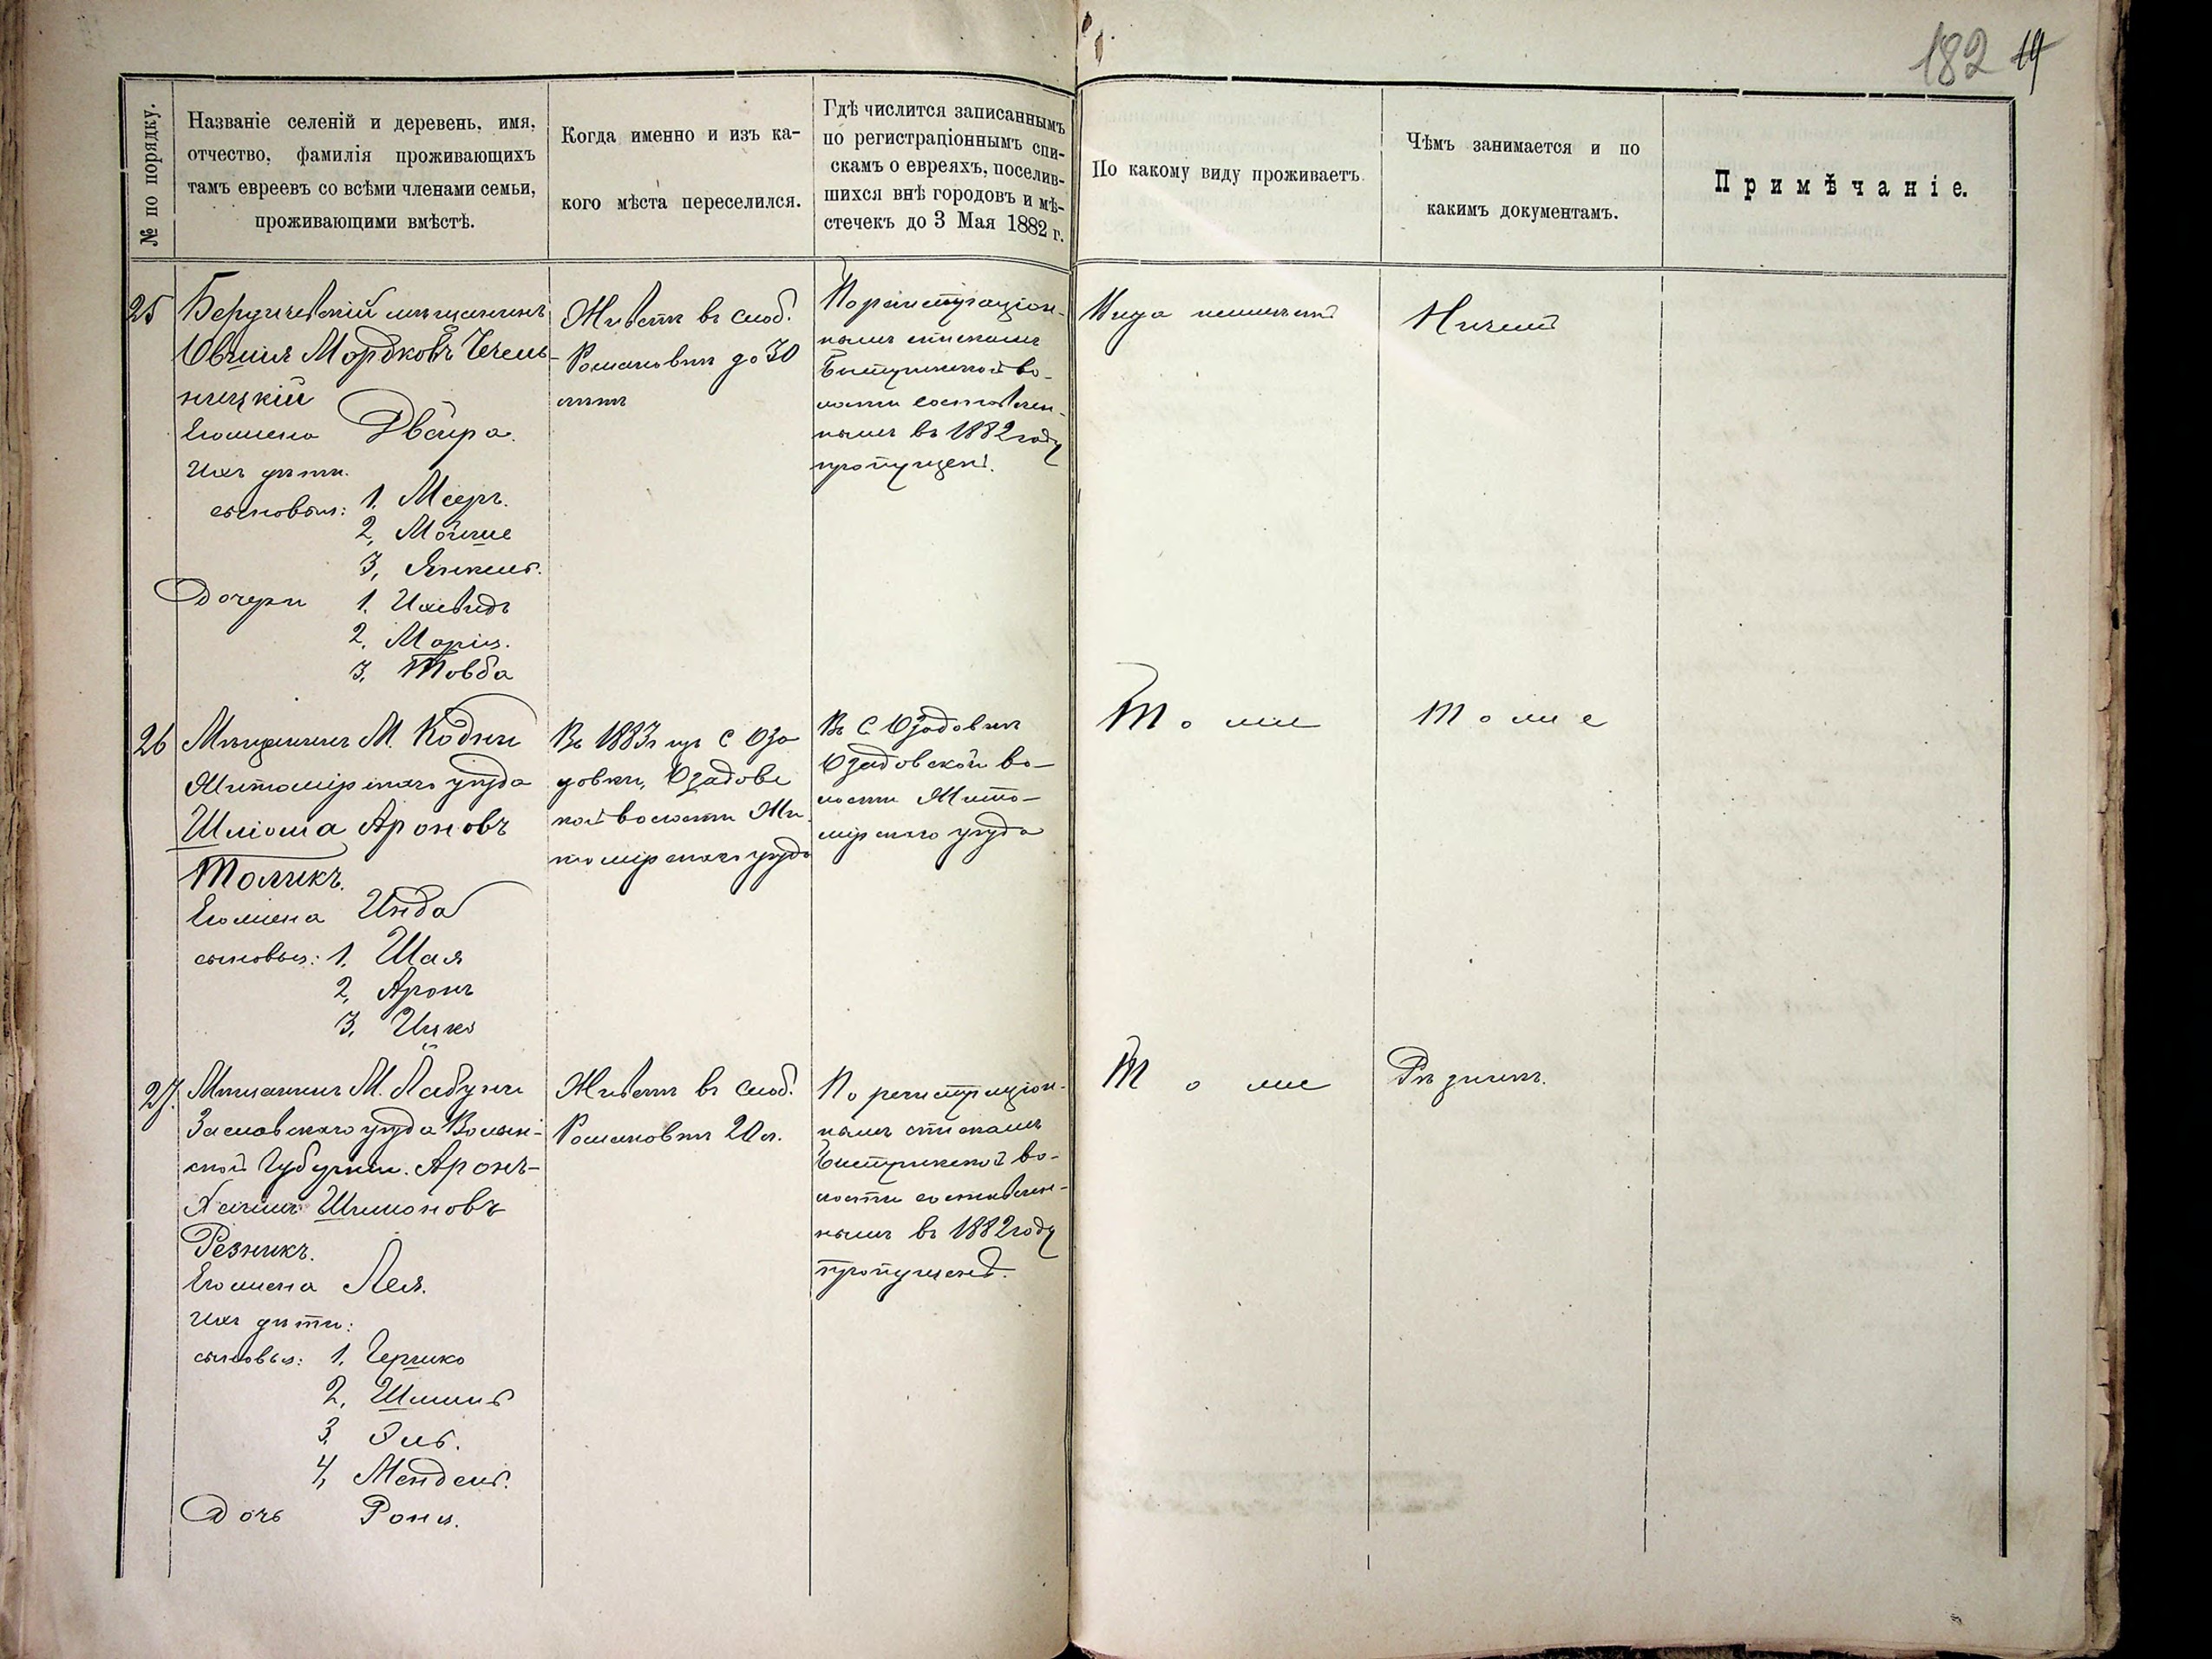 182 19
№ по порядку.
Названіе селеній и деревень, имя,
отчество, фамилія проживающихъ
тамъ евреевъ со всѣми членами семьи,
проживающими вмѣстѣ.
Когда именно и изъ ка-
кого мѣста переселился.
Гдѣ числится записаннымъ
по регистраціоннымъ спи-
скамъ о евреяхъ, поселив-
шихся внѣ городовъ и мѣ-
стечекъ до 3 Мая 1882 г.
По какому виду проживаетъ.
Чѣмъ занимается и по
какимъ документамъ.
Примѣчаніе.
25
Бердичевскій мѣщанинъ
Овшія Мордковъ Чечель-
ницкій
Его жена Двойра.
Ихъ дѣти.
сыновья: 1. Мееръ.
2, Мойше
3, Янкель.
Дочери 1.
2, Марія.
3, Товба
Живетъ въ слоб.
Романовкѣ до 30
лѣтъ
По регистраціон-
нымъ спискамъ
волости составлен-
нымъ въ 1882 году
пропущенъ.
Вида не имѣетъ
Ничемъ
26
Мѣщанинъ М. Кодни
Житомірскаго уѣзда
Шліома Ароновъ
Толикъ.
Его жена Инда
сыновья: 1, Шая
2, Аронъ
3, Ицко
Въ 1883 г. изъ С. Оза
довки, Озадовс
кой волости Жи
томірскаго уѣзда
Въ С. Озадовкѣ
Озадовской во-
лости Жито-
мірскаго уѣзда
Тоже
Тоже
27.
Мѣщанинъ М. Лабунь
Заславскаго уѣзда Волын-
ской Губерніи. Аронъ-
Хаимъ Шимоновъ
Резникъ.
Его жена Лея.
Ихъ дѣти:
сыновья: 1, Гершко
2, Шимонъ
3, Эль.
4, Мендель.
Дочь Роня.
Живетъ въ слоб.
Романовкѣ 20 л.
По регистраціон-
нымъ спискамъ
волости составлен-
нымъ въ 1882 году
пропущенъ.
Тоже
Рѣзникъ.